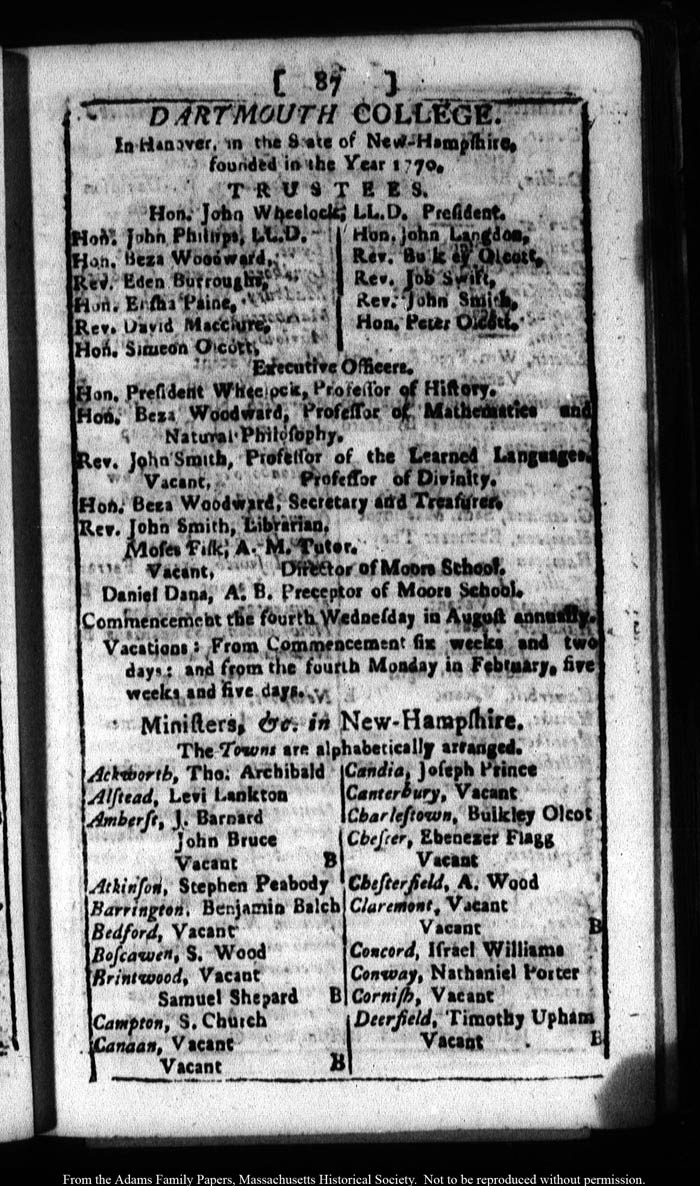 [ 87 ]
DARTMOUTH COLLEGE.
In Hanover, in the State of New-Hampſhire,
founded in the Year 1770.
TRUSTEES.
Hon. John Wheelock, LL.D. Preſident.
Hon. John Philips, LL.D.
Hon. Beza Woodward,
Rev. Eden Burroughs,
Hon. Eliſha Paine,
Rev. David Macclure,
Hon. Simeon Olcott,
Hon. John Langdon,
Rev. Bulkley Olcott,
Rev. Job Swift,
Rev. John Smith,
Hon. Peter Olcott.
Executive Officers.
Hon. Preſident Wheelock, Profeſſor of Hiſtory.
Hon. Beza Woodward, Profeſſor of Mathematics and
Natural Philoſophy.
Rev. John Smith, Profeſſor of the Learned Languages.
Vacant, Profeſſor of Divinity.
Hon. Beza Woodward, Secretary and Treaſurer.
Rev. John Smith, Librarian.
Moſes Fiſk, A. M. Tutor.
Vacant, Director of Moors School.
Daniel Dana, A. B. Preceptor of Moors School.
Commencement the fourth Wedneſday in Auguſt annually.
Vacations: From Commencement ſix weeks and two
days: and from the fourth Monday in February, five
weeks and five days.
Miniſters, &c. in New-Hampſhire.
The Towns are alphabetically arranged.
Ackworth, Tho. Archibald
Alſtead, Levi Lankton
Amherſt, J. Barnard
John Bruce
Vacant B
Atkinſon, Stephen Peabody
Barrington, Benjamin Balch
Bedford, Vacant
Boſcawen, S. Wood
Brintwood, Vacant
Samuel Shepard B
Campton, S. Church
Canaan, Vacant
Vacant B
Candia, Joſeph Prince
Canterbury, Vacant
Charleſtown, Bulkley Olcot
Cheſter, Ebenezer Flagg
Vacant
Cheſterfield, A. Wood
Claremont, Vacant
Vacant B
Concord, Iſrael Williams
Conway, Nathaniel Porter
Corniſh, Vacant
Deerfield, Timothy Upham
Vacant B
From the Adams Family Papers, Massachusetts Historical Society. Not to be reproduced without permission.